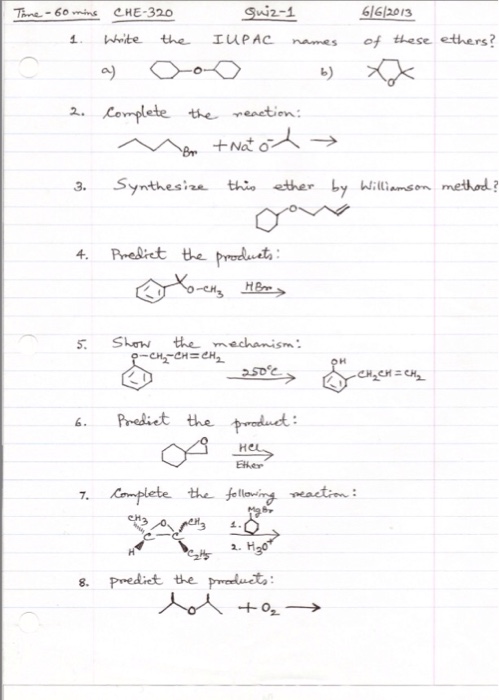 Time - 60 mins CHE-320 Quiz-1 6/6/2013
1. Write the IUPAC names of these ethers?
a) O b) O
2. Complete the reaction:
Br + Na+ O- →
3. Synthesize this ether by Williamson method?
O
4. Predict the products:
O-CH3 HBr
5. Show the mechanism:
O-CH2-CH=CH2 OH
250°C CH2CH=CH2
6. Predict the product:
O HCl
Ether
7. Complete the following reaction:
MgBr
CH3 O CH3 1.
C-C
H C2H5 2. H3O+
8. predict the products:
O + O2 →